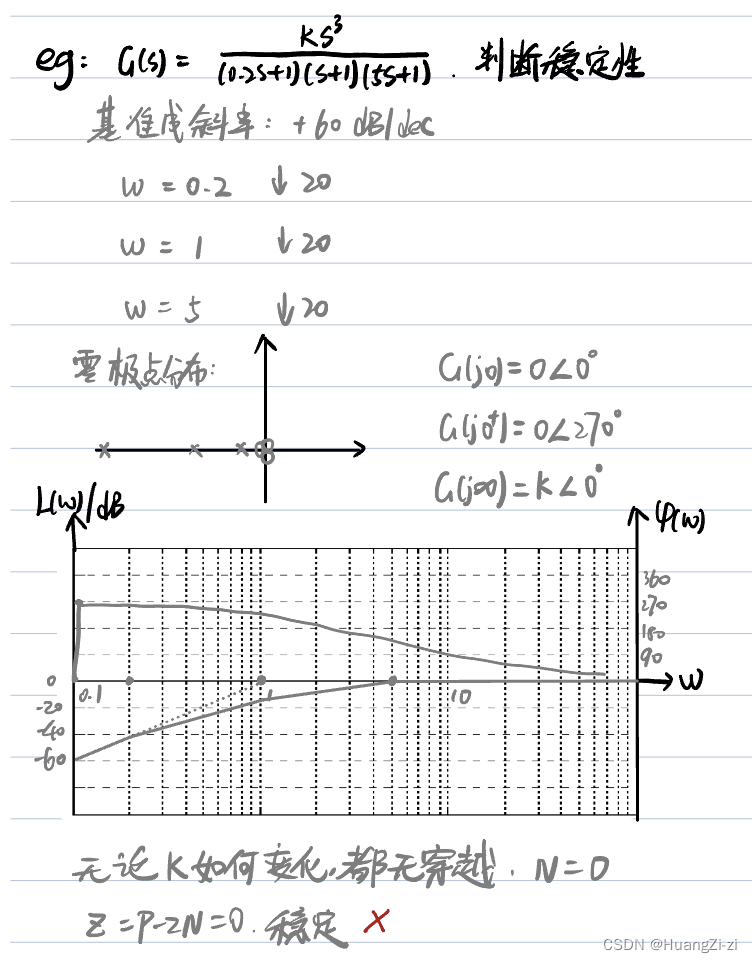 eg: G(s) = KS³ / (0.2S+1)(S+1)(5S+1) . 判断稳定性
基准线斜率: +60 dB/dec
w = 0.2 ↓20
w = 1 ↓20
w = 5 ↓20
零极点分布:
G(j0)=0∠0°
G(j0⁺)=0∠270°
G(j∞)=K∠0°
L(w)/dB
φ(w)
360
270
180
90
0
0.1
1
10
w
-20
-40
-60
无论K如何变化,都无穿越. N=0
Z=P-2N=0. 稳定 ×
CSDN @HuangZi-zi